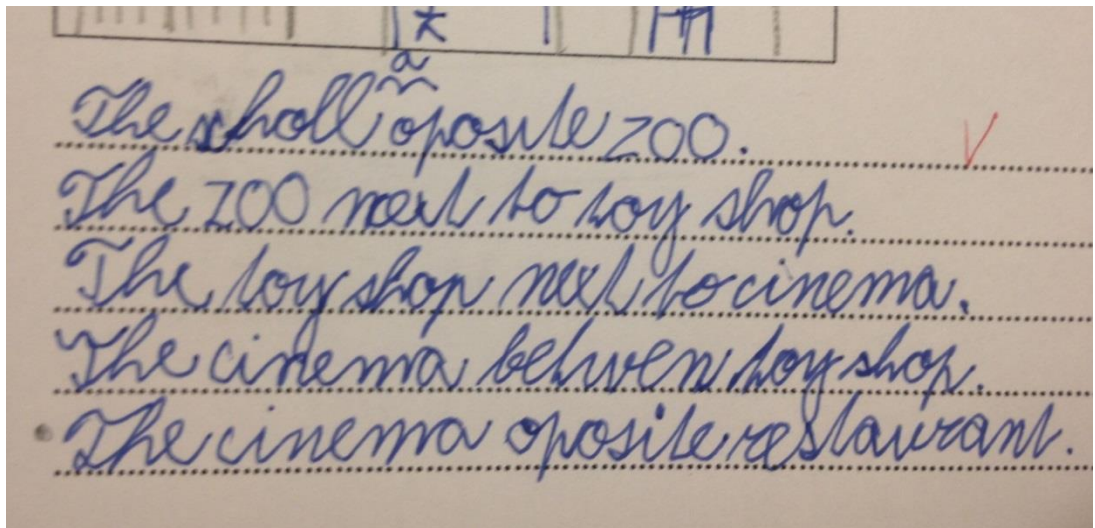 a
The scholl oposite ZOO.
The ZOO next to toy shop.
The toy shop next to cinema.
The cinema betwen toy shop.
The cinema oposite restaurant.